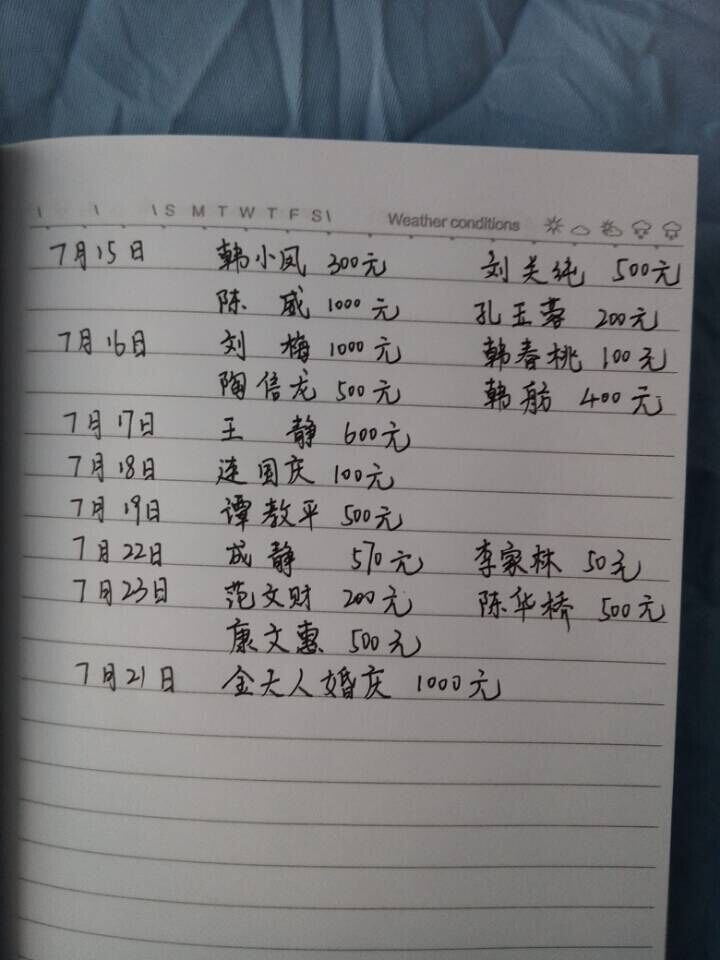 \ \ \ S M T W T F S \ Weather conditions
7月15日 韩小凤 300元 刘关纯 500元
陈威 1000元 孔玉蓉 200元
7月16日 刘梅 1000元 韩春桃 100元
陶信龙 500元 韩舫 400元
7月17日 王静 600元
7月18日 连国庆 100元
7月19日 谭教平 500元
7月22日 成静 570元 李家林 50元
7月23日 范文财 200元 陈华桥 500元
康文惠 500元
7月21日 金夫人婚庆 1000元